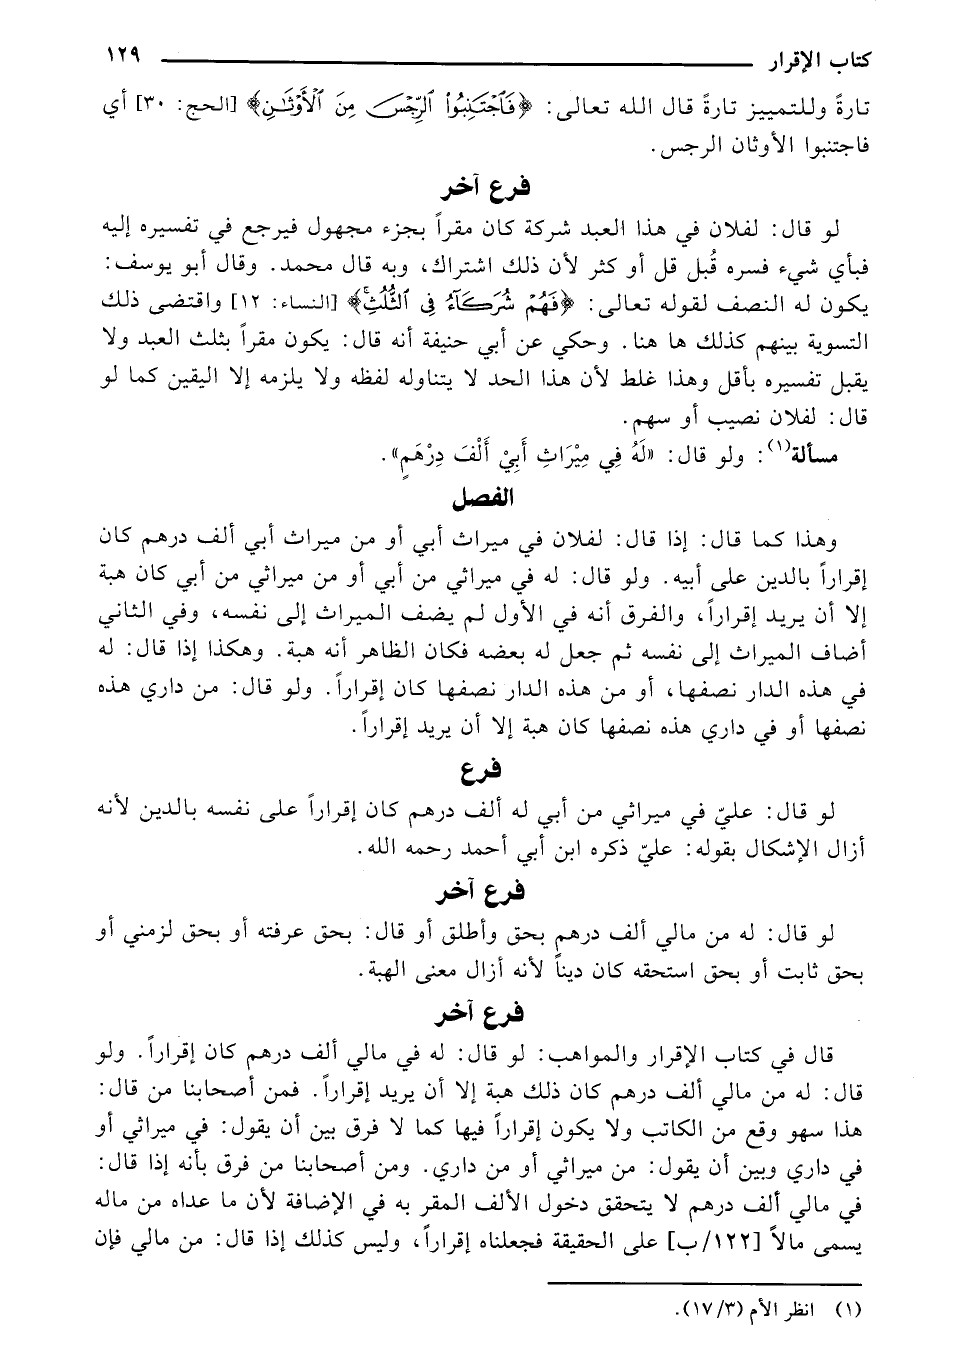 كتاب الإقرار ١٢٩
تارةً وللتمييز تارةً قال الله تعالى: ﴿فَاجْتَنِبُوا الرِّجْسَ مِنَ الْأَوْثَانِ﴾ [الحج: ٣٠] أي
فاجتنبوا الأوثان الرجس.
فرع آخر
لو قال: لفلان في هذا العبد شركة كان مقراً بجزء مجهول فيرجع في تفسيره إليه
فبأي شيء فسره قُبل قل أو كثر لأن ذلك اشتراك، وبه قال محمد. وقال أبو يوسف:
يكون له النصف لقوله تعالى: ﴿فَهُمْ شُرَكَآءُ فِي الثُّلُثِ﴾ [النساء: ١٢] واقتضى ذلك
التسوية بينهم كذلك ها هنا. وحكي عن أبي حنيفة أنه قال: يكون مقراً بثلث العبد ولا
يقبل تفسيره بأقل وهذا غلط لأن هذا الحد لا يتناوله لفظه ولا يلزمه إلا اليقين كما لو
قال: لفلان نصيب أو سهم.
مسألة(١): ولو قال: «لَهُ فِي مِيْرَاثِ أَبِيْ أَلْفَ دِرْهَمٍ».
الفصل
وهذا كما قال: إذا قال: لفلان في ميراث أبي أو من ميراث أبي ألف درهم كان
إقراراً بالدين على أبيه. ولو قال: له في ميراثي من أبي أو من ميراثي من أبي كان هبة
إلا أن يريد إقراراً، والفرق أنه في الأول لم يضف الميراث إلى نفسه، وفي الثاني
أضاف الميراث إلى نفسه ثم جعل له بعضه فكان الظاهر أنه هبة. وهكذا إذا قال: له
في هذه الدار نصفها، أو من هذه الدار نصفها كان إقراراً. ولو قال: من داري هذه
نصفها أو في داري هذه نصفها كان هبة إلا أن يريد إقراراً.
فرع
لو قال: عليّ في ميراثي من أبي له ألف درهم كان إقراراً على نفسه بالدين لأنه
أزال الإشكال بقوله: عليّ ذكره ابن أبي أحمد رحمه الله.
فرع آخر
لو قال: له من مالي ألف درهم بحق وأطلق أو قال: بحق عرفته أو بحق لزمني أو
بحق ثابت أو بحق استحقه كان ديناً لأنه أزال معنى الهبة.
فرع آخر
قال في كتاب الإقرار والمواهب: لو قال: له في مالي ألف درهم كان إقراراً. ولو
قال: له من مالي ألف درهم كان ذلك هبة إلا أن يريد إقراراً. فمن أصحابنا من قال:
هذا سهو وقع من الكاتب ولا يكون إقراراً فيها كما لا فرق بين أن يقول: في ميراثي أو
في داري وبين أن يقول: من ميراثي أو من داري. ومن أصحابنا من فرق بأنه إذا قال:
في مالي ألف درهم لا يتحقق دخول الألف المقر به في الإضافة لأن ما عداه من ماله
يسمى مالاً [١٢٢/ب] على الحقيقة فجعلناه إقراراً، وليس كذلك إذا قال: من مالي فإن
(١) انظر الأم (١٧/٣).